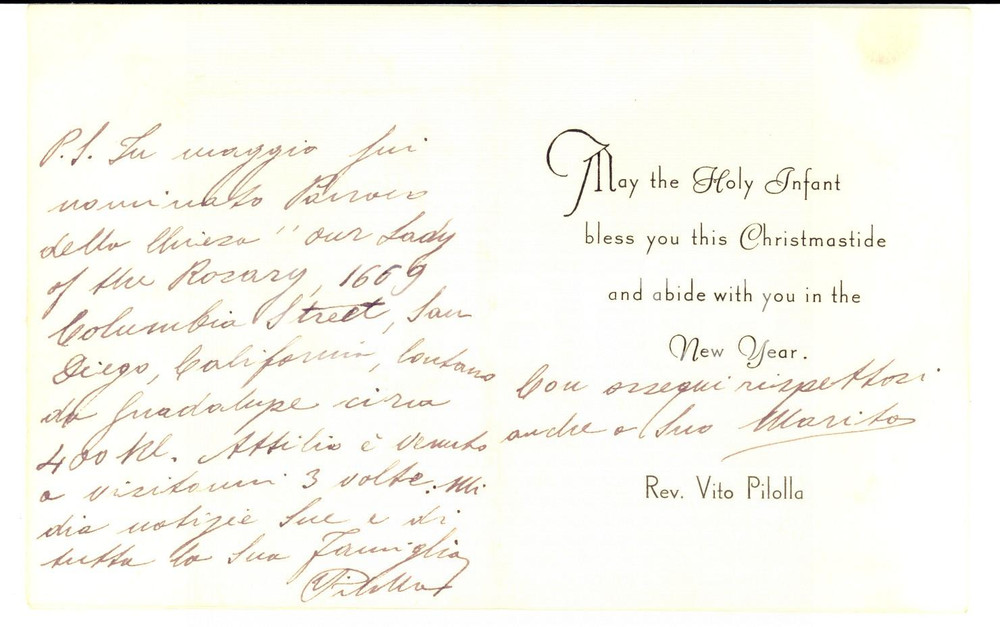 P.S. In maggio fui
nominato Parroco
della Chiesa "Our Lady
of the Rosary, 1669
Columbia Street, San
Diego, California, lontano
da Guadalupe circa
400 Kl. Attilio è venuto
a visitarmi 3 volte. Mi
dia notizie Sue e di
tutta la Sua Famiglia
Pilolla
May the Holy Infant
bless you this Christmastide
and abide with you in the
New Year.
Con ossequi rispettosi
anche a Suo Marito
Rev. Vito Pilolla